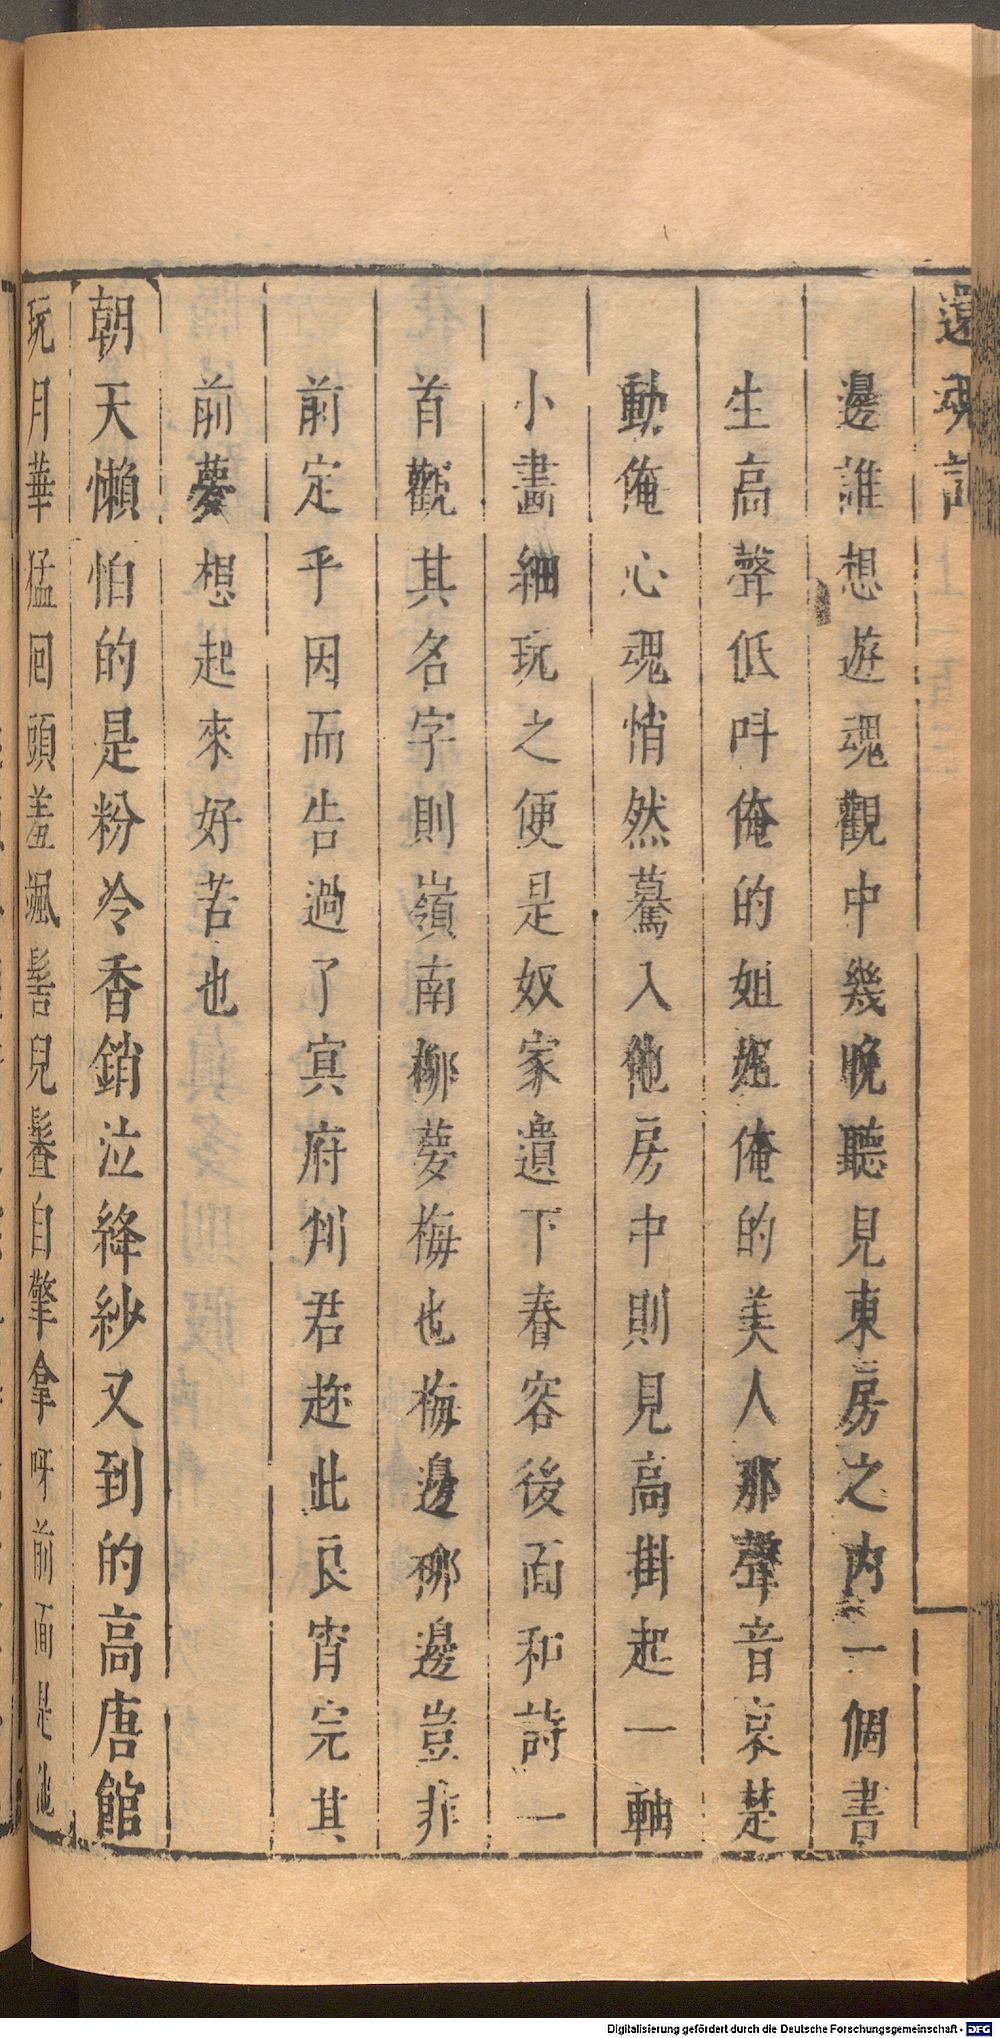 還魂記
邊誰想遊魂觀中幾晚聽見東房之內一個書
生高聲低叫俺的姐姐俺的美人那聲音哀楚
動俺心魂悄然驀入他房中則見高掛起一軸
小畫細玩之便是奴家遺下春容後面和詩一
首觀其名字則嶺南柳夢梅也梅邊柳邊豈非
前定乎因而告過了冥府判君趂此良宵完其
前夢想起來好苦也
朝天懶怕的是粉冷香銷泣絳紗又到的高唐館
玩月華猛回頭羞颯髻兒鬖自擎拿呀前面是他
Digitalisierung gefördert durch die Deutsche Forschungsgemeinschaft - DFG